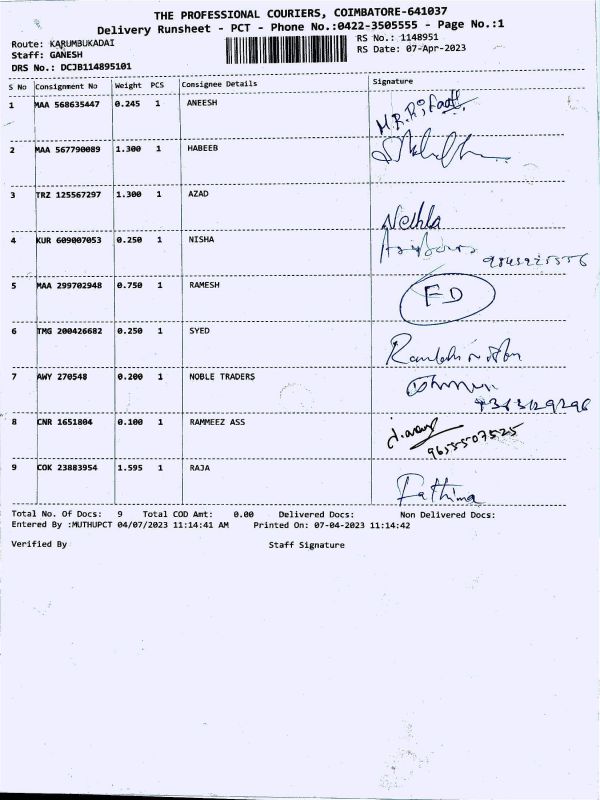 THE PROFESSIONAL COURIERS, COIMBATORE-641037
Delivery Runsheet - PCT - Phone No.:0422-3505555 - Page No.:1
Route: KARUMBUKADAI
RS No.: 1148951
Staff: GANESH
RS Date: 07-Apr-2023
DRS No.: DCJB114895101
S No Consignment No Weight PCS Consignee Details Signature
1 MAA 568635447 0.245 1 ANEESH
2 MAA 567790089 1.300 1 HABEEB
3 TRZ 125567297 1.300 1 AZAD
Nethla
4 KUR 609007053 0.250 1 NISHA
5 MAA 299702948 0.750 1 RAMESH FD
6 TMG 200426682 0.250 1 SYED
7 AWY 270548 0.200 1 NOBLE TRADERS
8 CNR 1651804 0.100 1 RAMMEEZ ASS
9655507525
9 COK 23883954 1.595 1 RAJA
Fathima
Total No. Of Docs: 9 Total COD Amt: 0.00 Delivered Docs: Non Delivered Docs:
Entered By :MUTHUPCT 04/07/2023 11:14:41 AM Printed On: 07-04-2023 11:14:42
Verified By Staff Signature